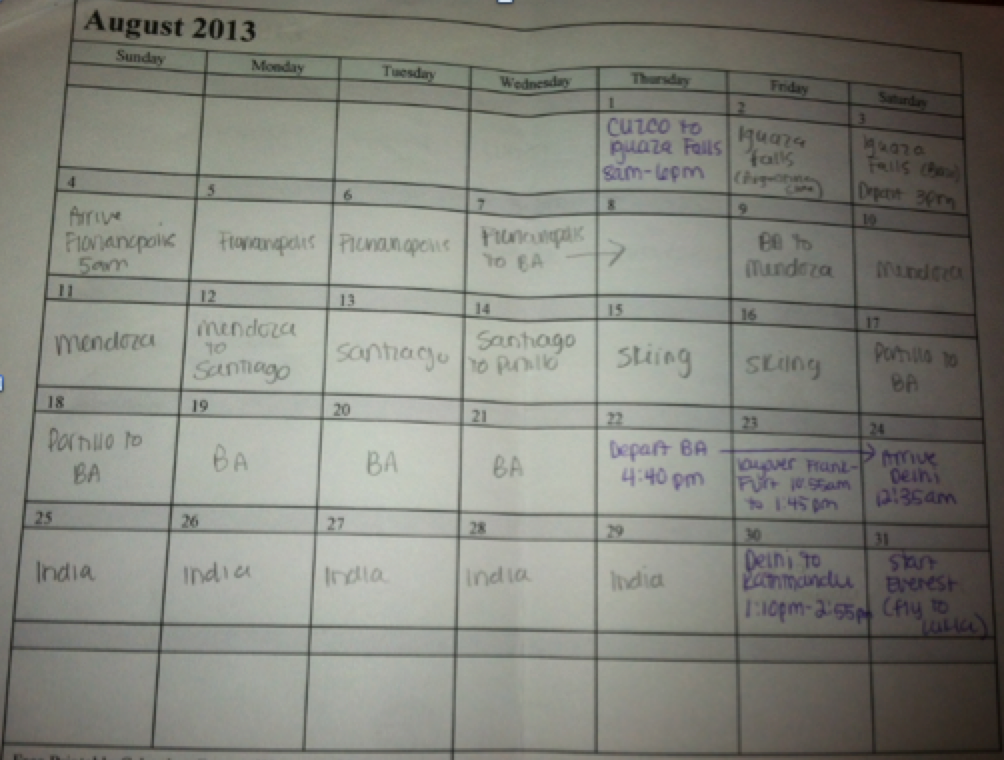 August 2013
Sunday Monday Tuesday Wednesday Thursday Friday Saturday
1 2 3
CUZCO to
Iguaza Falls
8am-6pm
Iguaza
Falls
Iguaza
Falls
Depart 3pm
4 5 6 7 8 9 10
Arrive
Florianopolis
5am
Florianopolis
Florianopolis
Florianopolis
to BA →
BA to
Mendoza
Mendoza
11 12 13 14 15 16 17
Mendoza
Mendoza
to
Santiago
Santiago
Santiago
to Portillo
Skiing
Skiing
Portillo to
BA
18 19 20 21 22 23 24
Portillo to
BA
BA
BA
BA
Depart BA
4:40 pm
layover Frank-
Furt 10:55am
to 1:45pm
Arrive
Delhi
12:35am
25 26 27 28 29 30 31
India
India
India
India
India
Delhi to
Kathmandu
1:10pm-2:55pm
Start
Everest
(fly to